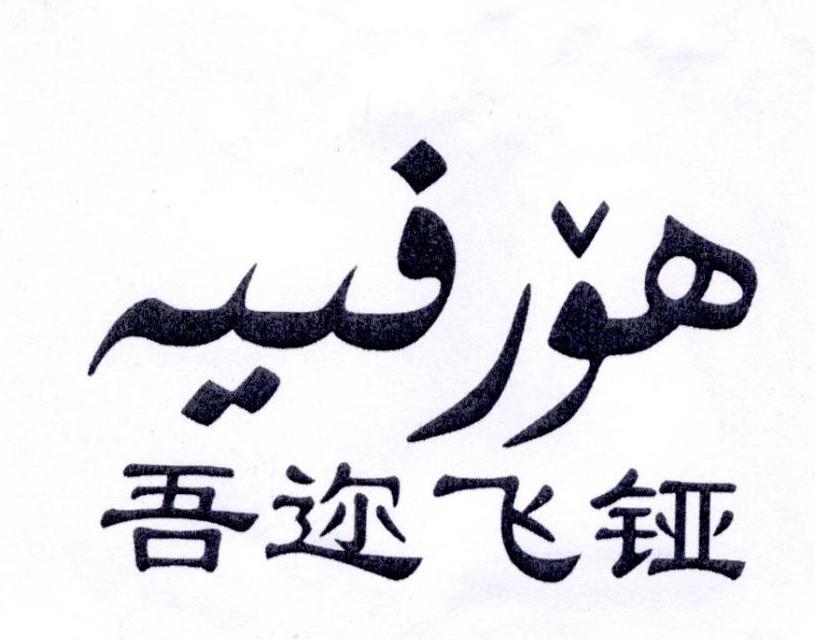 ھۆرفىيە
吾迩飞铔